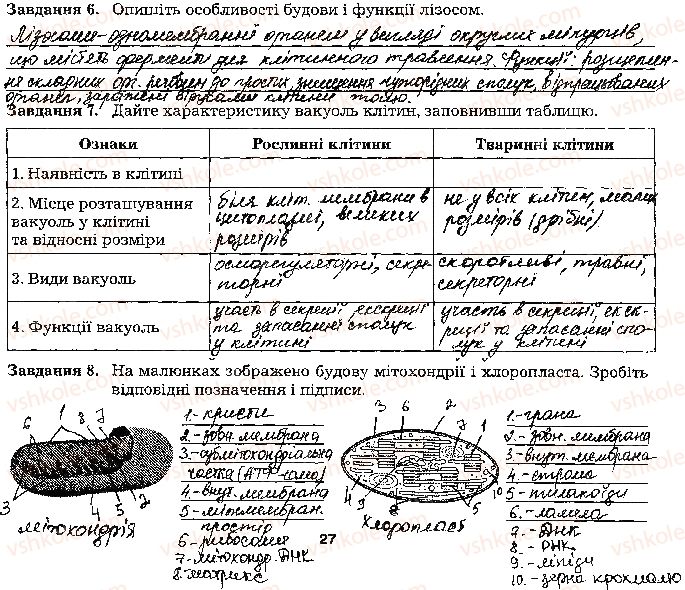 Завдання 6. Опишіть особливості будови і функції лізосом.
Лізосоми - одномембранні органели у вигляді округлих міхурців,
що містять ферменти для клітинного травлення. Функції: розщеплен-
ня складних орг. речовин до простих, знищення чужорідних сполук, відпрацьованих
органел, заражені вірусами клітини тощо.
Завдання 7. Дайте характеристику вакуоль клітин, заповнивши таблицю.
Ознаки Рослинні клітини Тваринні клітини
1. Наявність в клітині
2. Місце розташування
вакуоль у клітині
та відносні розміри
біля кліт. мембрани в
цитоплазмі, великих
розмірів
не у всіх клітин, малих
розмірів (дрібні)
3. Види вакуоль
осморегуляторні, секре-
торні
скоротливі, травні,
секреторні
4. Функції вакуоль
участь в секреції, екскреції
та запасанні сполук
у клітині
участь в секреції, екск-
реції та запасанні спо-
лук у клітині
Завдання 8. На малюнках зображено будову мітохондрії і хлоропласта. Зробіть
відповідні позначення і підписи.
6 1 8 7
3 4 5 2
мітохондрія
1.- кристи
2.- зовн. мембрана
3.- субмітохондріальна
частка (АТФ-сома)
4.- внут. мембрана
5.- міжмембран.
простір
6.- рибосоми
7.- мітохондр. ДНК
8. матрикс
3 6 2 7 1
4 9 8 5 10
Хлоропласт
1.- грана
2.- зовн. мембрана
3.- внут. мембрана
4.- строма
5.- тилакоїди
6.- ламела
7.- ДНК
8.- РНК
9.- ліпіди
10.- зерна крохмалю
27
vshkole.com